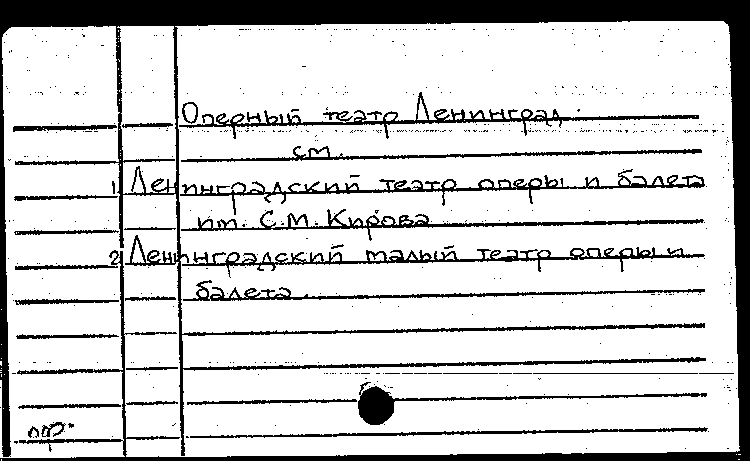 Оперный театр Ленинград.
см.
1. Ленинградский театр оперы и балета
им. С.М. Кирова
2. Ленинградский малый театр оперы и
балета.